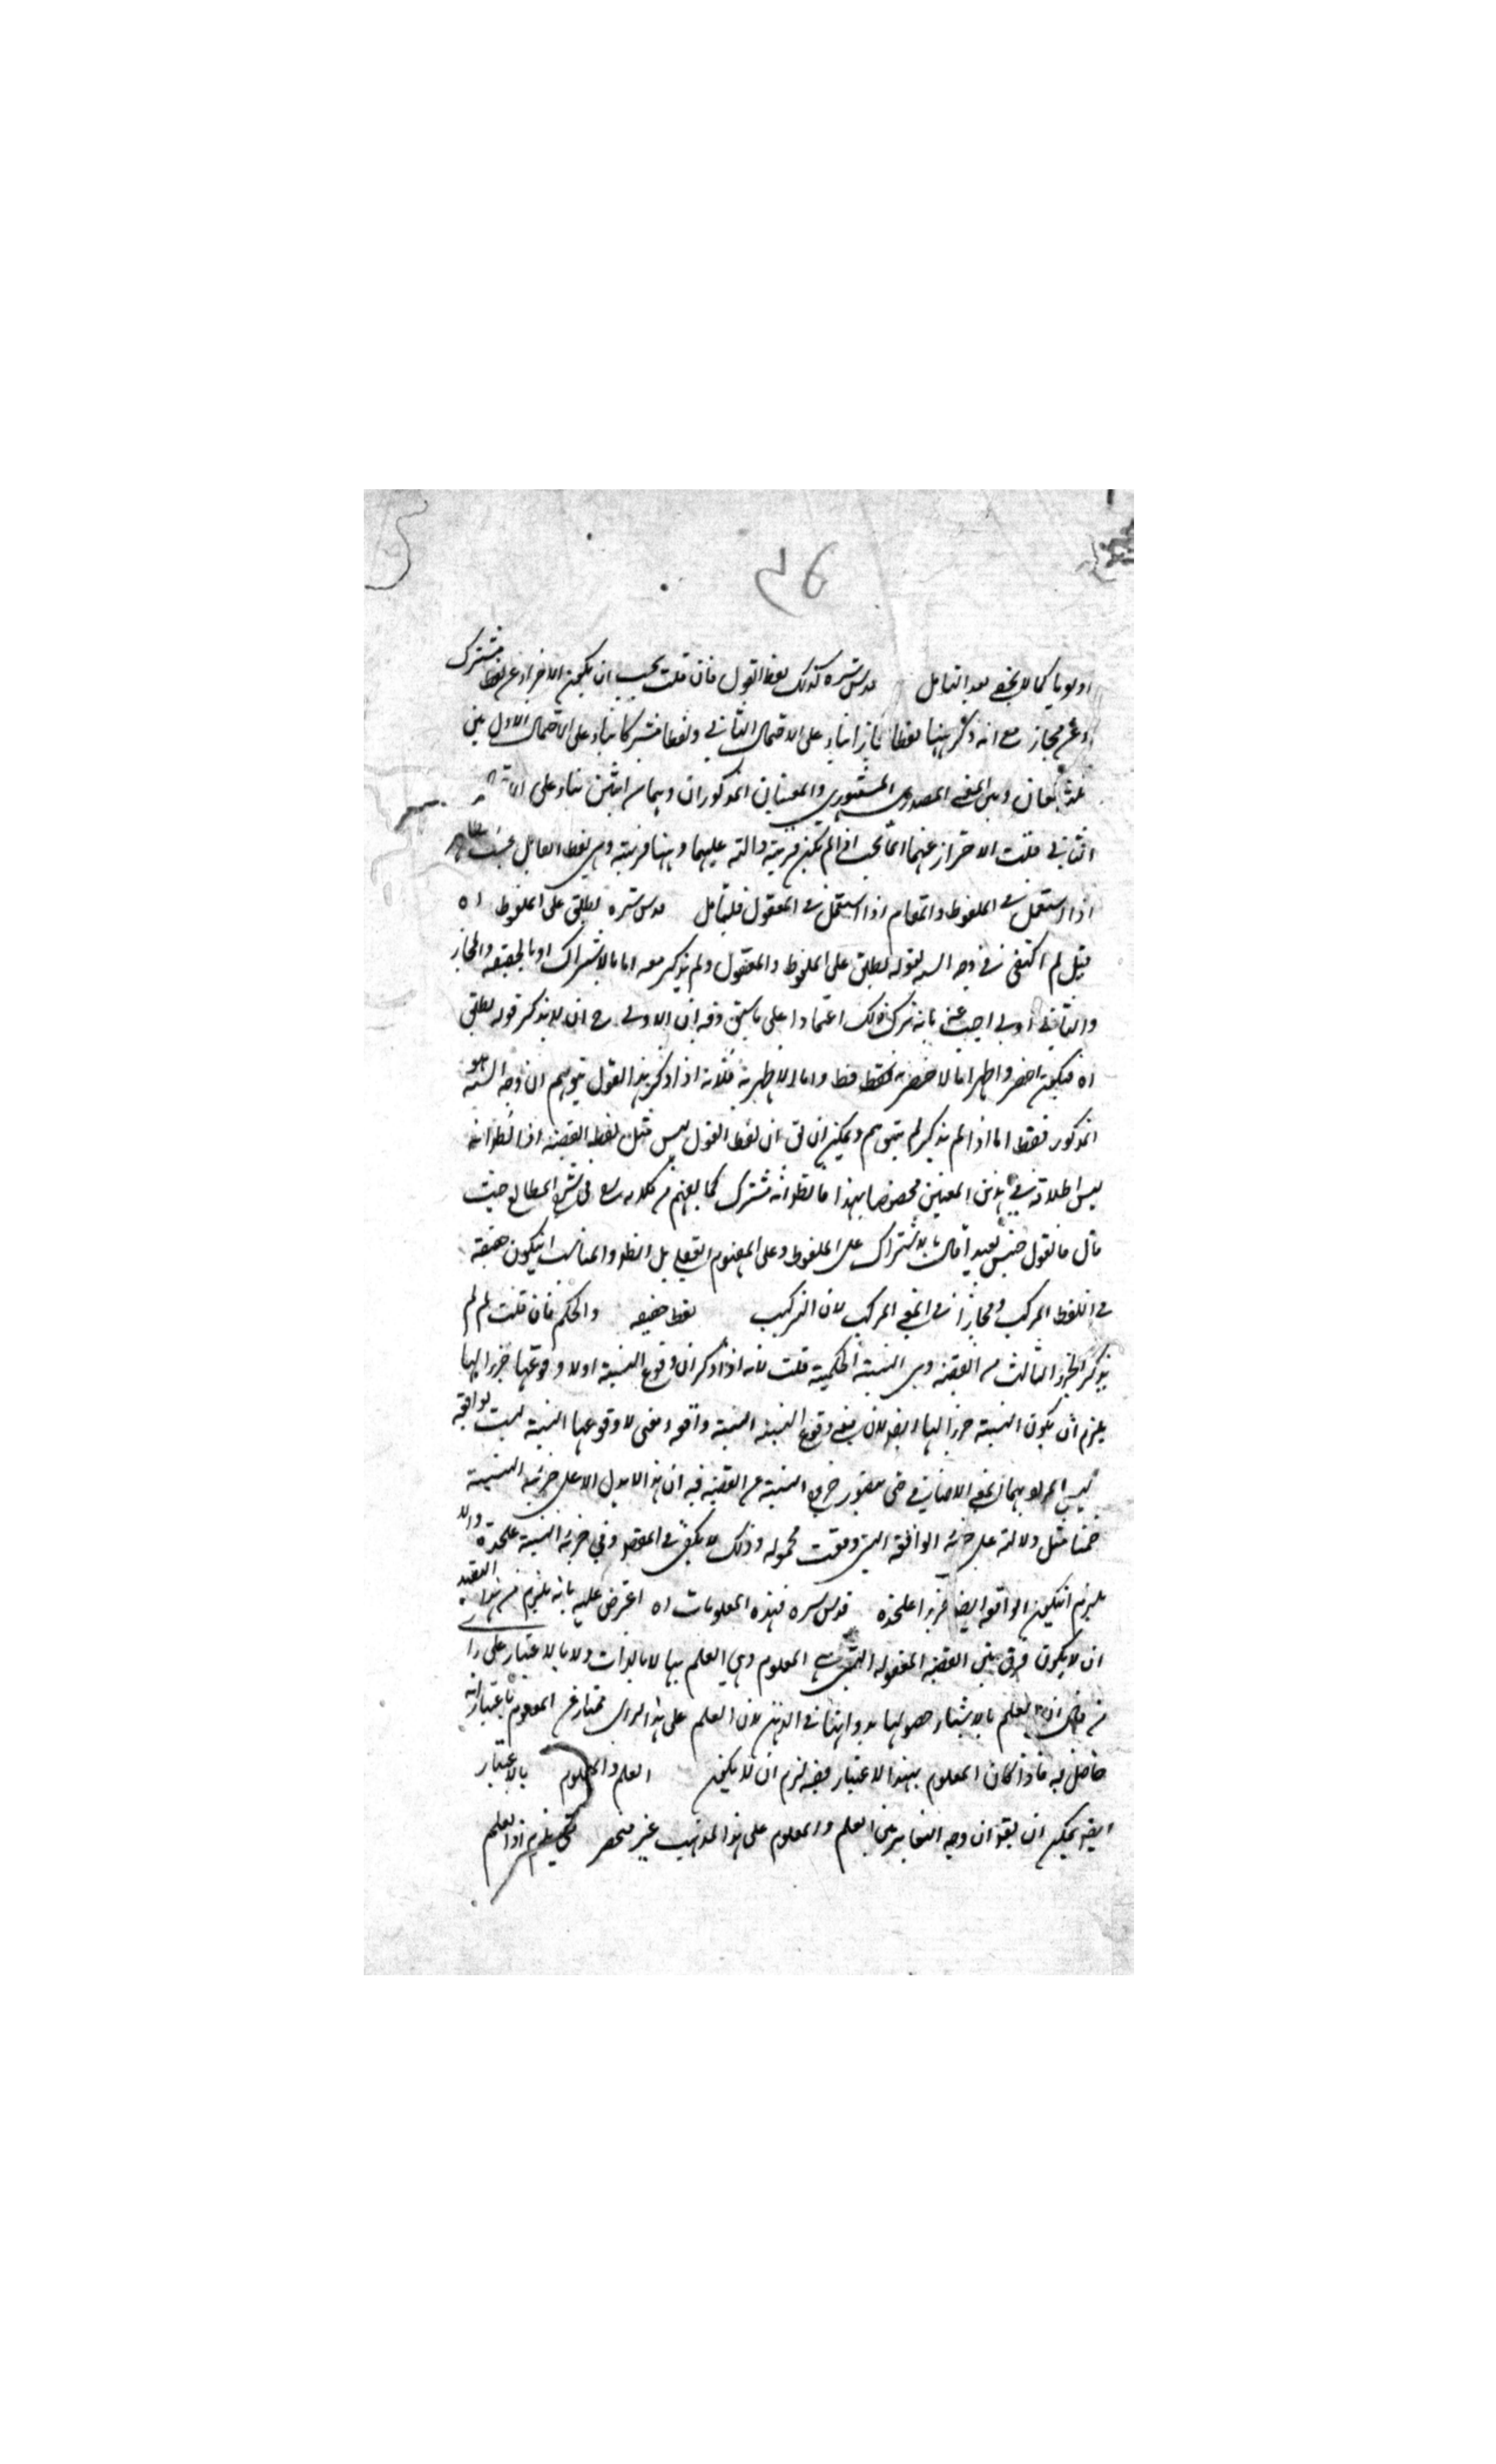 ٣٦
او لويا كما لا يخفى بعد التامل قدس سره كذلك لفظ القول فان قلت يجب ان يكون الاحتراز عن لفظ مشترك
او عن مجاز مع انه ذكر ههنا لفظا مجازا بناء على الاحتمال الثاني ولفظا مشتركا بناء على الاحتمال الاول بين
معان وهى المعنى المصدرى والمعنيان المذكوران وبهما بين اثنين بناء على
الثاني قلت الاحتراز عنهما انما يجب اذا لم يكن قرينة دالة عليهما وههنا قرينة وهى لفظ القايل
اذا استعمل في الملفوظ والمقام اذا استعمل في المعقول فليتامل قدس سره يطلق على الملفوظ اه
قيل لم اكتفى في وجه الشبه بقوله يطلق على الملفوظ والمعقول ولم يذكر معه اما بالاشتراك او بالحقيقة والمجاز
والثاني اولى اجيب عنه بانه ترك ذلك اعتمادا على ما سبق وفيه ان الاولى ح ان لا يذكر قوله يطلق
اه فيكون اخصر واظهر اما الاخصرية فقط واما الاظهرية فلانه اذا ذكر هذا القول يتوهم ان وجه الشبه هو
المذكور فقط اما اذا لم يذكر لم يتوهم ويمكن ان يق ان لفظ القول ليس مثل لفظ القضية اذ الظ انه
ليس اطلاقه في هذين المعنيين مخصوصا بهذا فالظ انه مشترك كما يفهم من كلامه في شرح المطالع حيث
قال فالقول جنس بعيد يقال بالاشتراك على الملفوظ وعلى المفهوم العقلى بل الظ والمناسب ان يكون حقيقة
في اللفظ المركب ومجازا في المعنى المركب لان التركيب لفظ حقيقة والحكم فان قلت لم لم
يذكر الجزء الثالث من القضية وهى النسبة الحكمية قلت لانه اذا ذكر ان وقوع النسبة او لا وقوعها جزء لها
يلزم ان يكون النسبة جزء لها ايضا لان معنى وقوع النسبة النسبة واقعة ومعنى لا وقوعها النسبة ليست بواقعة
ليس المراد بهما المعنى الاضافي حتى يتصور خروج النسبة عن القضية فيه ان هذا لا يدل الا على جزئية النسبة
ضمنا مثل دلالته على جزئية الواقعة التى وقعت محموله وذلك لا يكفى في المقصود وفي جزئية النسبة على حدة والا
يلزم ان يكون الواقعة ايضا جزءا على حدة قدس سره فهذه المعلومات اه اعترض عليه بانه يلزم من هذا التقييد
ان لا يكون فرق بين القضية المعقولة التى هى المعلوم وهى العلم بها لا بالذات ولا بالاعتبار على را
من قال ان العلم بالاشياء حصولها بذواتها في الذهن لان العلم على هذا الراى ممتاز عن المعلوم باعتبار انه
حاصل به فاذا كان المعلوم بهذا الاعتبار فيلزم ان لا يكون العلم والمعلوم بالاعتبار
ايضا يمكن ان يق ان وجه التغاير بين العلم والمعلوم على هذا المذهب غير منحصر اذ العلم